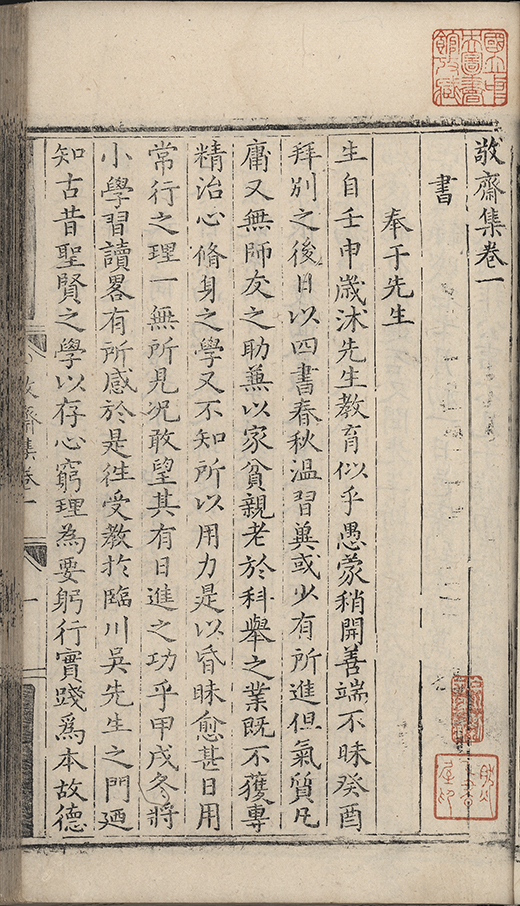 敬齋集卷一
書
奉于先生
生自壬申歲沐先生教育似乎愚蒙稍開善端不昧癸酉
拜別之後日以四書春秋温習兾或少有所進但氣質凡
庸又無師友之助兼以家貧親老於科舉之業既不獲專
精治心脩身之學又不知所以用力是以昏昧愈甚日用
常行之理一無所見况敢望其有日進之功乎甲戌冬將
小學習讀畧有所感於是徃受教於臨川吳先生之門廼
知古昔聖賢之學以存心窮理為要躬行實踐為本故德
敬齋集卷一
一
國立中
央圖書
館收藏